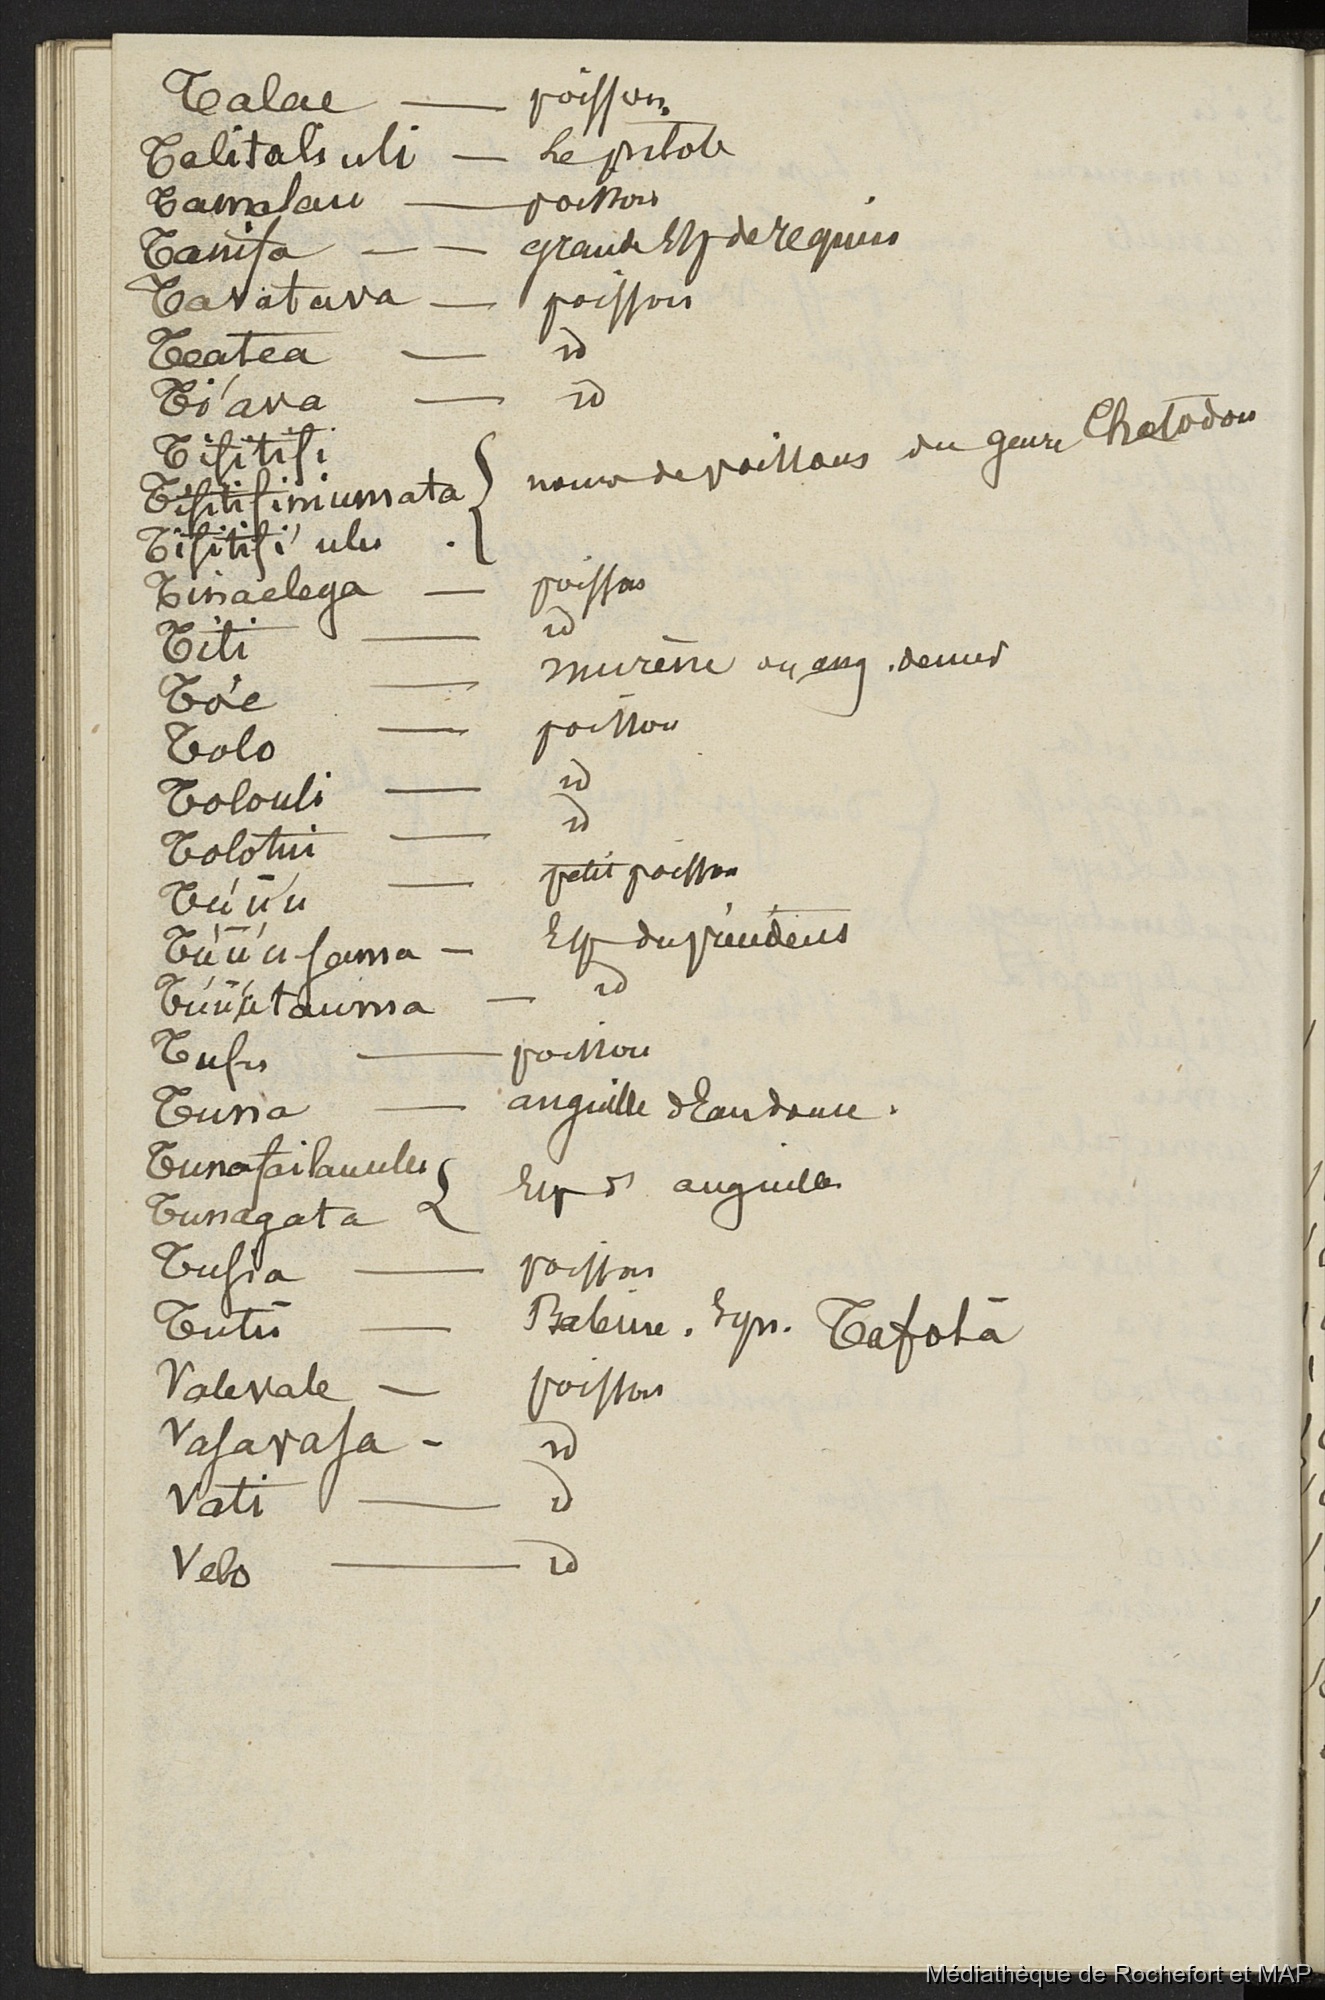 Talae — poisson.
Talitaliuli — Le pilote
Tamalau — poisson
Tanifa — — grande Esp de requin
Tavatava — poisson
Teatea — id
Ti'ava — id
Tifitifi
Tifitifimumata { noms de poissons du genre Chetodon
Tifitifi ulu .
Tinaelega — poisson
Titi — id
To'e — murène ou ang. de mer
Tolo — poisson
Tolouli — id
Tolotui — id
Tu'u'u — petit poisson
Tu'u'u fama — Esp du précédens
Tu'u'u tauma — id
Tufu — poisson
Tuna — anguille d'Eau douce.
Tunafailauulu { Esp d' anguilles
Tunagata
Tusia — poisson
Tutū — Baleine. Syn. Tafolā
Valevale — poisson
Vasavasa - id
Vati — id
Velo — id
Médiathèque de Rochefort et MAP